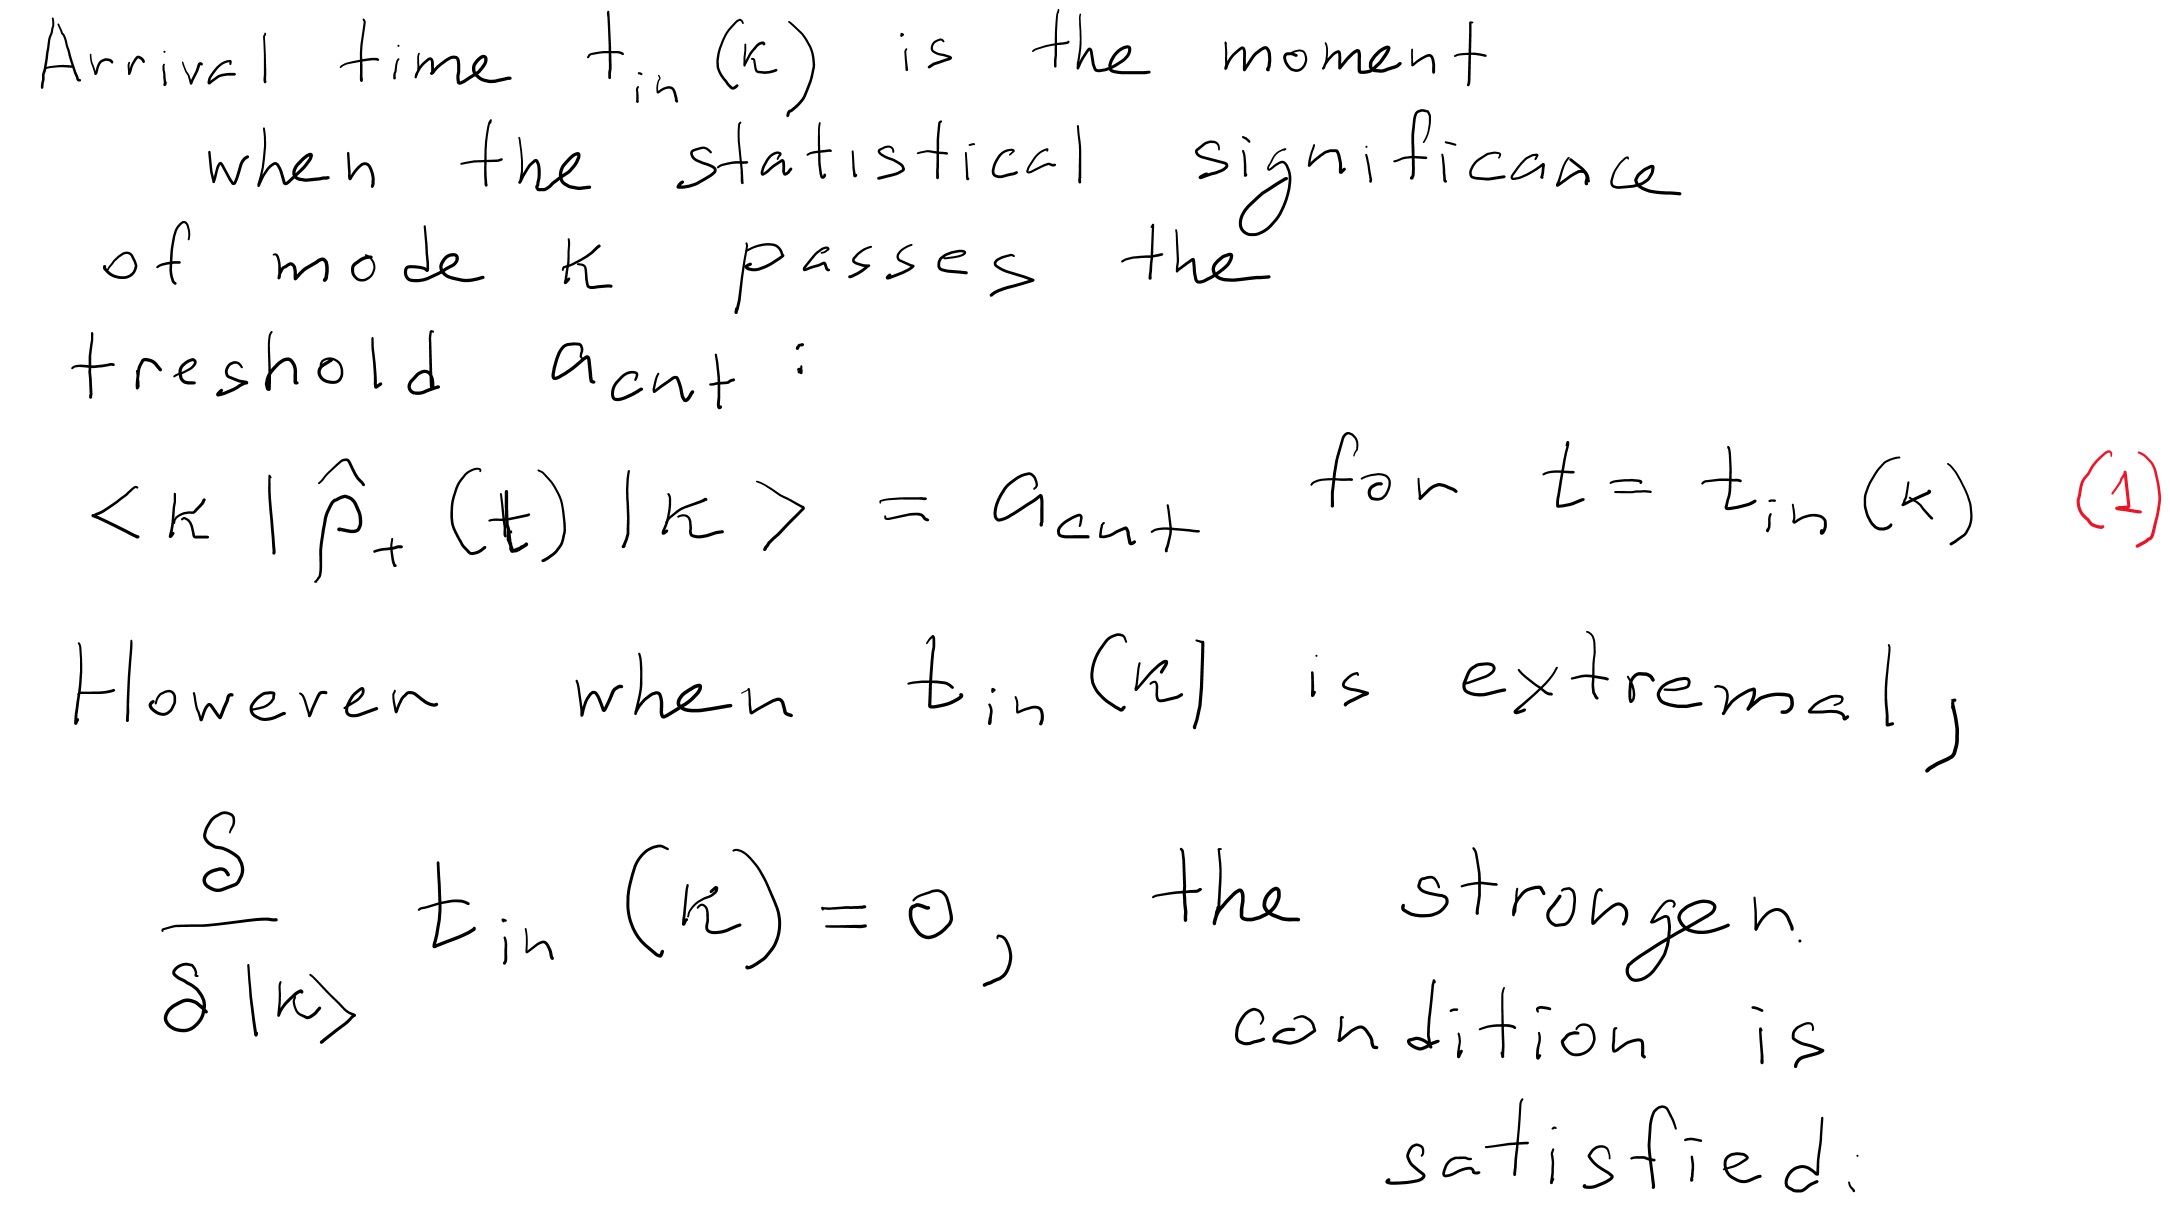 Arrival time t_in (k) is the moment
when the statistical significance
of mode k passes the
treshold a_cut :
<k | ρ̂_+ (t) | k> = a_cut for t = t_in (k) (1)
However when t_in (k) is extremal,
δ/δ|k> t_in (k) = 0, the stronger
condition is
satisfied: